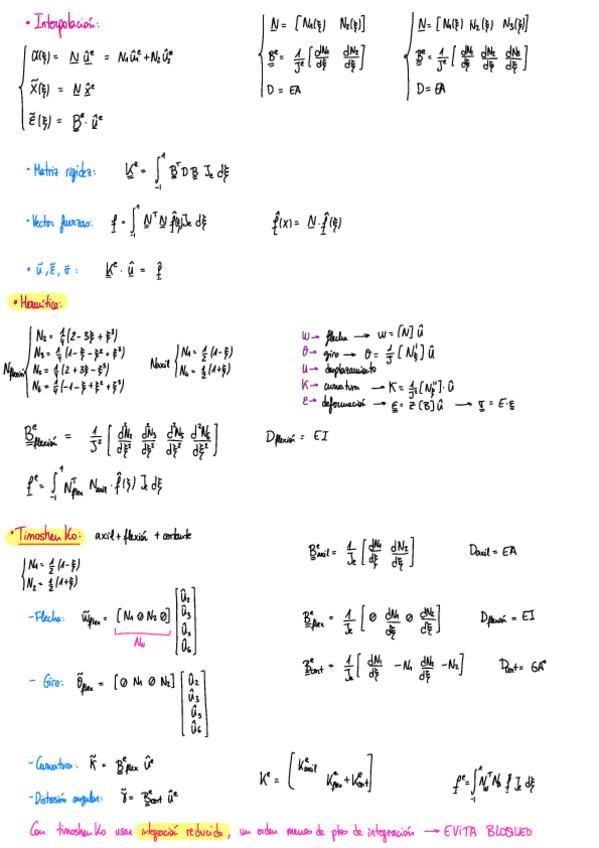 • Interpolación:
ũ(ξ) = N û^e = N₁û₁^e + N₂û₂^e
x̃(ξ) = N x̂^e
ε̃(ξ) = B^e · û^e
N = [N₁(ξ) N₂(ξ)]
B^e = 1/J^e [dN₁/dξ dN₂/dξ]
D = EA
N = [N₁(ξ) N₂(ξ) N₃(ξ)]
B^e = 1/J^e [dN₁/dξ dN₂/dξ dN₃/dξ]
D = EA
• Matriz rigidez: K^e = ∫₋₁¹ B^T D B J_e dξ
• Vector fuerzas: f = ∫₋₁¹ N^T N f̂(ξ) J_e dξ f̂(x) = N · f̂(ξ)
• ũ, ε̃, σ̃ : K^e · û = f̂
• Hermítico:
N_flexión
N₂ = 1/4 (2 - 3ξ + ξ³)
N₃ = 1/4 (1 - ξ - ξ² + ξ³)
N₅ = 1/4 (2 + 3ξ - ξ³)
N₆ = 1/4 (-1 - ξ + ξ² + ξ³)
N_axil
N₁ = 1/2 (1-ξ)
N₄ = 1/2 (1+ξ)
w → flecha → w = [N] û
θ → giro → θ = 1/J [N'_ξ] û
u → desplazamiento
K → curvatura → K = 1/J² [N''_ξ] · û
ε → deformación → ε = z · [B] û → σ = E · ε
B^e_flexión = 1/J² [d²N₂/dξ² d²N₃/dξ² d²N₅/dξ² d²N₆/dξ²] D_flexión = EI
f^e = ∫₋₁¹ N^T_flex N_axil · f̂(ξ) J_e dξ
• Timoshenko: axil + flexión + cortante
N₁ = 1/2 (1-ξ)
N₂ = 1/2 (1+ξ)
B^e_axil = 1/J_e [dN₁/dξ dN₂/dξ] D_axil = EA
- Flecha: w̃_flex = [N₁ 0 N₂ 0] [û₂ û₃ û₅ û₆]
N_w
B^e_flex = 1/J_e [0 dN₁/dξ 0 dN₂/dξ] D_flexión = EI
B^e_cort = 1/J_e [dN₁/dξ -N₁ dN₂/dξ -N₂] D_cort = GA*
- Giro: θ̃_flex = [0 N₁ 0 N₂] [û₂ û₃ û₅ û₆]
- Curvatura: K̃ = B^e_flex û^e
- Distorsión angular: γ̃ = B^e_cort û^e
K^e = [K^e_axil K^e_flex + K^e_cort]
f^e = ∫₋₁¹ N_w^T N_b f J_e dξ
Con timoshenko usar integración reducida, un orden menos de ptos de integración → EVITA BLOQUEO